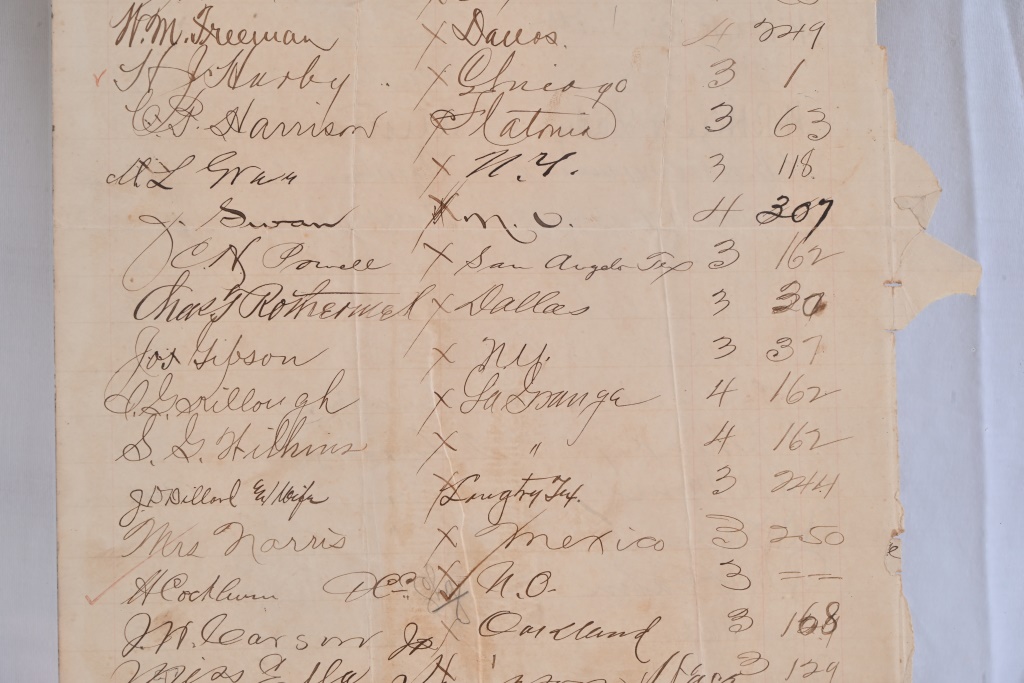 W. M. Freeman × Dallas. 4 249
H J Harby . × Chicago 3 1
C. B. Harrison × Flatonia 3 63
L × N.Y. 3 118.
Swan × N. O. 4 307
C. N Powell × San Angelo Tex 3 162
Chas F Rothermel × Dallas 3 30
Jos Gibson × N.Y. 3 37
Killough × La Grange 4 162
S. G. Wilkins × " 4 162
J D Dillard & Wife × Langtry Tex. 3 244
Mrs Norris × Mexico 3 250
H Cockburn × N.O. 3 = =
J. W. Carson Jr × Oakland 3 168
Miss Ella 3 129